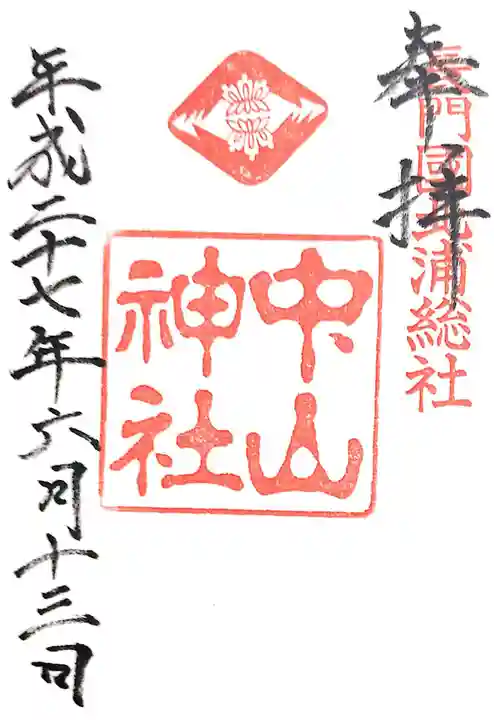 奉拝
長門國北浦総社
中山
神社
平成二十七年六月十三日